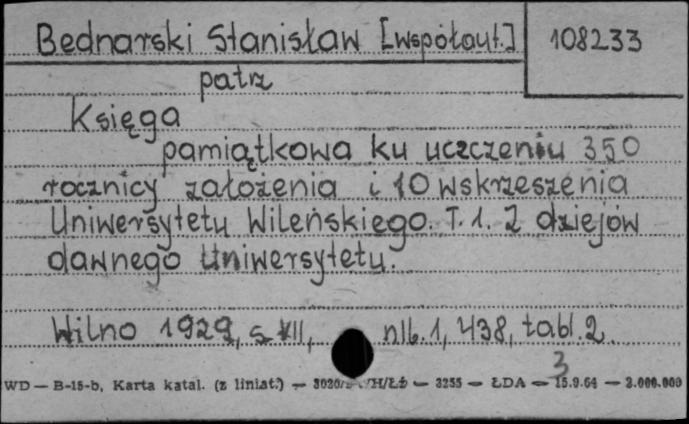 Bednarski Stanisław [współaut.] 108233
patrz
Księga
pamiątkowa ku uczczeniu 350
rocznicy założenia i 10 wskrzeszenia
Uniwersytetu Wileńskiego. T. 1. Z dziejów
dawnego Uniwersytetu.
Wilno 1929, s. XII, nlb. 1, 438, tabl. 2.
3
WD — B-15-b, Karta katal. (z liniat.) — 3020/ /H/ŁŻ — 3255 — ŁDA — 15.9.64 — 2.000.000